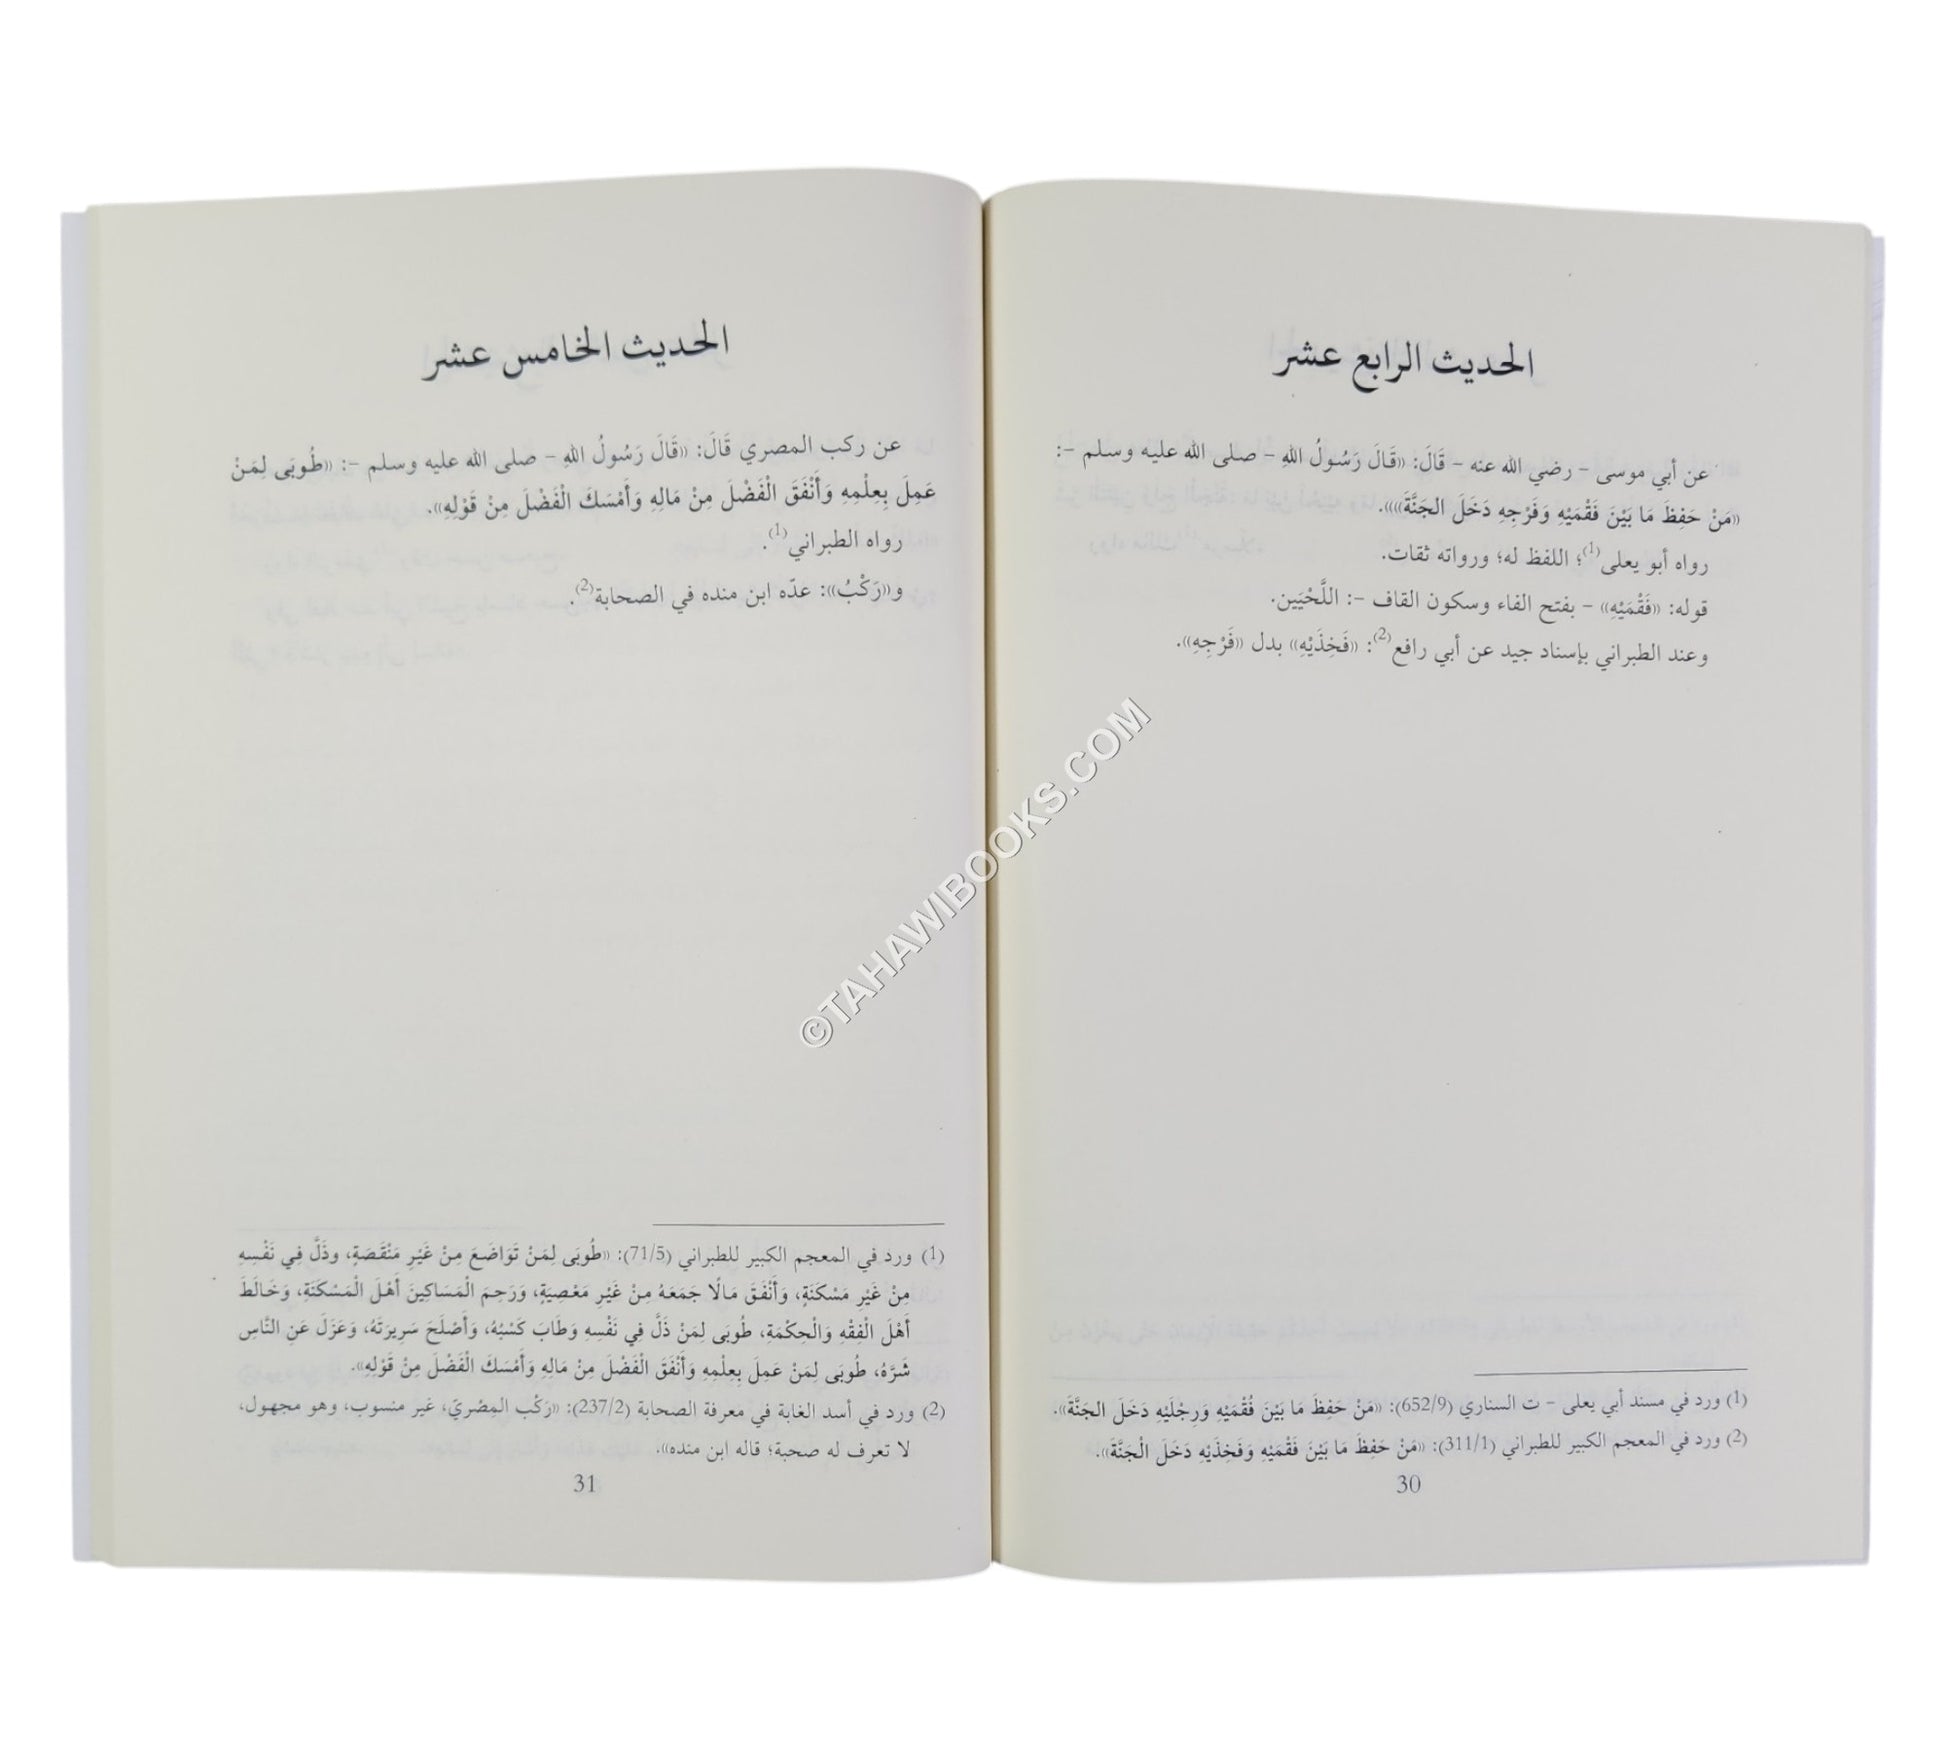 الحديث الرابع عشر
عن أبي موسى – رضي الله عنه – قَالَ: «قَالَ رَسُولُ اللهِ – صلى الله عليه وسلم –:
«مَنْ حَفِظَ مَا بَيْنَ فَقْمَيْهِ وَفَرْجِهِ دَخَلَ الجَنَّةَ»»».
رواه أبو يعلى(1)؛ اللفظ له؛ ورواته ثقات.
قوله: «فَقْمَيْهِ» – بفتح الفاء وسكون القاف –: اللَّحْيَين.
وعند الطبراني بإسناد جيد عن أبي رافع(2): «فَخِذَيْهِ» بدل «فَرْجِهِ».
(1) ورد في مسند أبي يعلى – ت السناري (652/9): «مَنْ حَفِظَ مَا بَيْنَ فُقْمَيْهِ وَرِجْلَيْهِ دَخَلَ الجَنَّةَ».
(2) ورد في المعجم الكبير للطبراني (311/1): «مَنْ حَفِظَ مَا بَيْنَ فَقْمَيْهِ وَفَخِذَيْهِ دَخَلَ الْجَنَّةَ».
30
الحديث الخامس عشر
عن ركب المصري قَالَ: «قَالَ رَسُولُ اللهِ – صلى الله عليه وسلم –: «طُوبَى لِمَنْ
عَمِلَ بِعِلْمِهِ وَأَنْفَقَ الْفَضْلَ مِنْ مَالِهِ وَأَمْسَكَ الْفَضْلَ مِنْ قَوْلِهِ».
رواه الطبراني(1).
و«رَكْبُ»: عدّه ابن منده في الصحابة(2).
(1) ورد في المعجم الكبير للطبراني (71/5): «طُوبَى لِمَنْ تَوَاضَعَ مِنْ غَيْرِ مَنْقَصَةٍ، وذَلَّ فِي نَفْسِهِ
مِنْ غَيْرِ مَسْكَنَةٍ، وَأَنْفَقَ مَالًا جَمَعَهُ مِنْ غَيْرِ مَعْصِيَةٍ، وَرَحِمَ الْمَسَاكِينَ أَهْلَ الْمَسْكَنَةِ، وَخَالَطَ
أَهْلَ الْفِقْهِ وَالْحِكْمَةِ، طُوبَى لِمَنْ ذَلَّ فِي نَفْسِهِ وَطَابَ كَسْبُهُ، وَأَصْلَحَ سَرِيرَتَهُ، وَعَزَلَ عَنِ النَّاسِ
شَرَّهُ، طُوبَى لِمَنْ عَمِلَ بِعِلْمِهِ وَأَنْفَقَ الْفَضْلَ مِنْ مَالِهِ وَأَمْسَكَ الْفَضْلَ مِنْ قَوْلِهِ».
(2) ورد في أسد الغابة في معرفة الصحابة (237/2): «رَكْب المِصْريّ، غير منسوب، وهو مجهول،
لا تعرف له صحبة؛ قاله ابن منده».
31
©TAHAWIBOOKS.COM